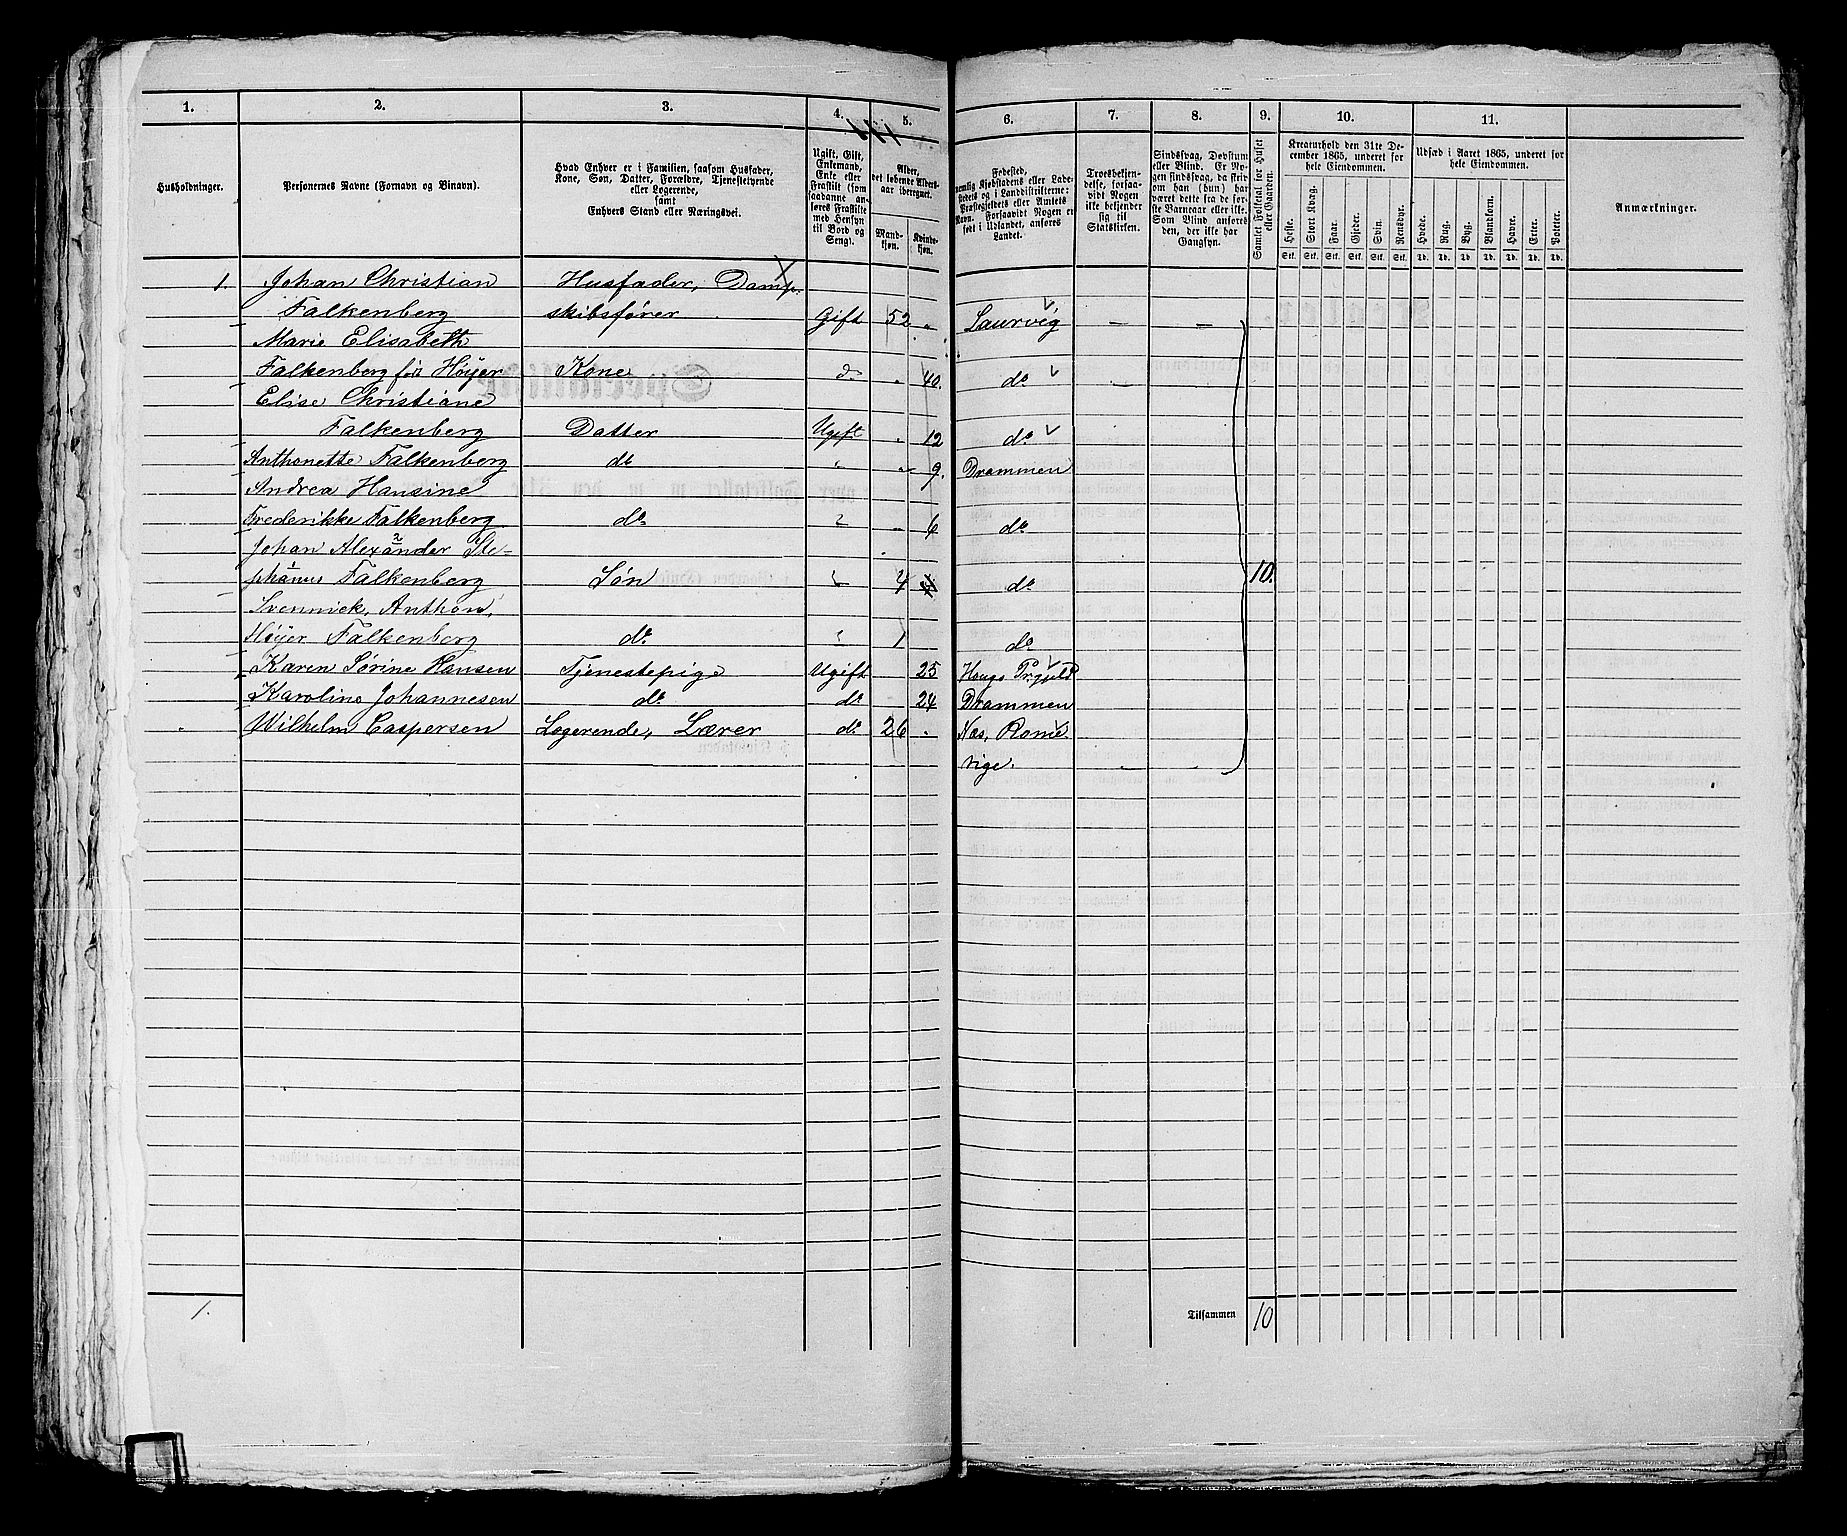 1. 2. 3. 4. 5. 6. 7. 8. 9. 10. 11.
Husholdninger.
Personernes Navne (Fornavn og Binavn).
Hvad Enhver er i Familien, saasom Husfader,
Kone, Søn, Datter, Forældre, Tjenestetyende
eller Logerende,
samt
Enhvers Stand eller Næringsvei.
Ugift, Gift,
Enkemand,
Enke eller
Fraskilt (som
saadanne an-
føres Fraskilte
med Hensyn
til Bord og
Seng).
Alder,
det løbende Alders-
aar iberegnet.
Mand-
kjøn.
Kvinde-
køn.
Fødested,
nemlig Kjøbstadens eller Lade-
stedets og i Landdistrikterne:
Præstegjeldets eller Amtets
Navn. Forsaavidt Nogen er
født i Udlandet, anføres
Landet.
Troesbekjen-
delse, forsaa-
vidt Nogen
ikke bekjender
sig til
Statskirken.
Sindssvag, Døvstum
eller Blind. Er No-
gen sindssvag, da skriv
om han (hun) har
været dette fra de før-
ste Barneaar eller ikke.
Som Blind anføres
den, der ikke har
Gangsyn.
Samlet Folketal for Huset
eller Gaarden.
Kreaturhold den 31te De-
cember 1865, underet for
hele Eiendommen.
Heste. Stort Kvæg. Faar. Gjeder. Svin. Rensdyr.
Stk. Stk. Stk. Stk. Stk. Stk.
Udsæd i Aaret 1865, underet for
hele Eiendommen.
Hvede. Rug. Byg. Blandkorn. Havre. Erter. Poteter.
Td. Td. Td. Td. Td. Td. Td.
Anmærkninger.
1. Johan Christian Husfader, Damp-
Falkenberg skibsfører Gift 52 „ Laurvig — —
Marie Elisabeth
Falkenberg fød Høyer Kone do „ 40. do
Elise Christiane
Falkenberg Datter Ugift „ 12 do
Anthonette Falkenberg do „ „ 9. Drammen
Andrea Hansine
Frederikke Falkenberg do „ „ 6 do
Johan Alexander Ste-
phanus Falkenberg Søn „ 4 do 10.
Svennick, Anthon,
Høyer Falkenberg do „ 1 do
Karen Sørine Hansen Tjenestepige Ugift 25 Hougs Prgjeld
Karoline Johannesen do do 24 Drammen
Wilhelm Caspersen Logerende, Lærer do 26 „ Næs, Rome-
rige.
1. Tilsammen 10